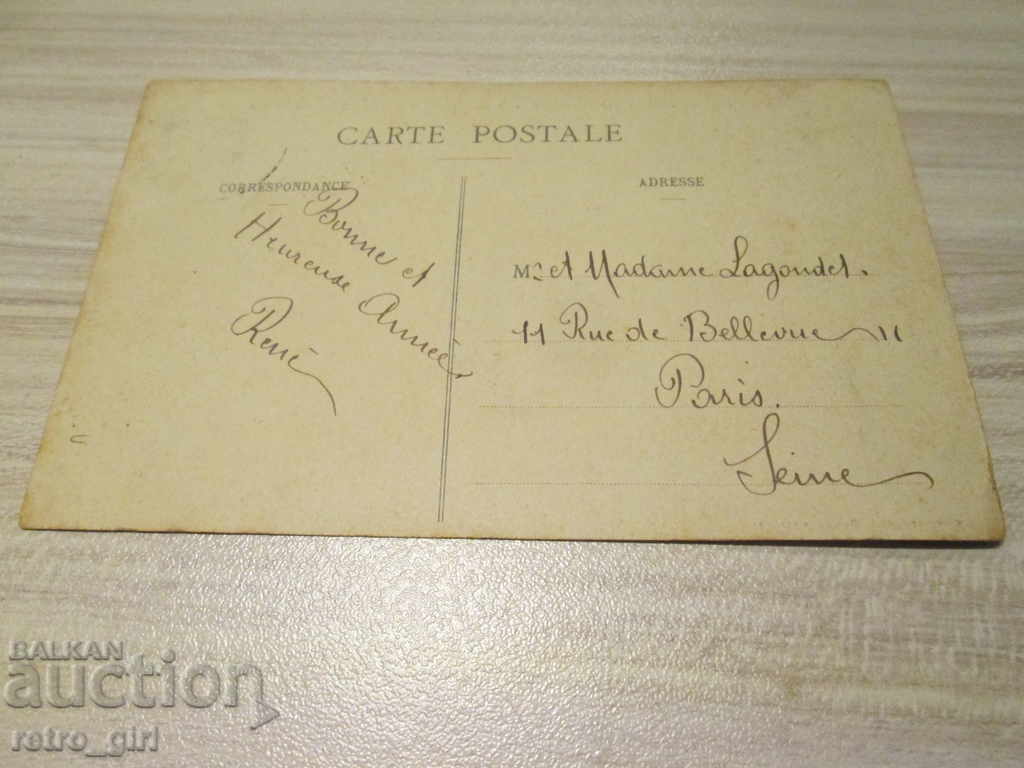 CARTE POSTALE
CORRESPONDANCE
Bonne et
Heureuse Année
René
ADRESSE
Mr et Madame Lagoudet.
11 Rue de Bellevue 11
Paris.
Seine
BALKAN
auction
retro_girl